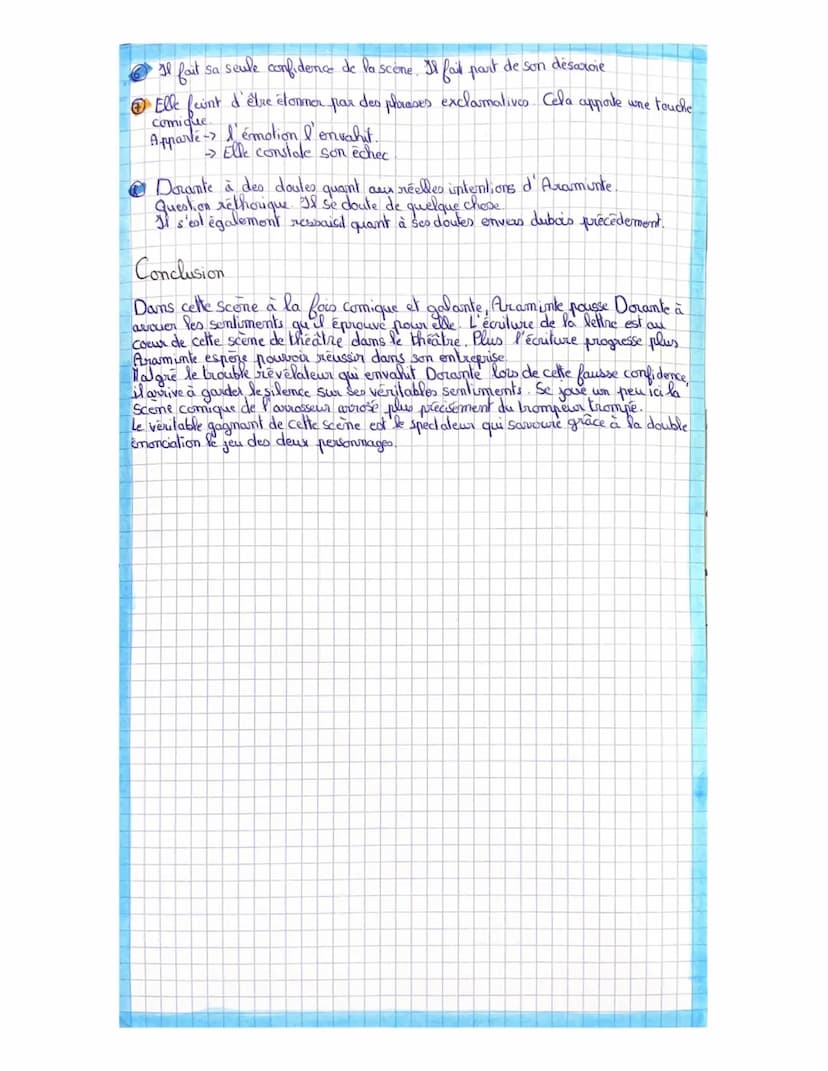 6 Il fait sa seule confidence de la scène. Il fait part de son désaroie
7 Elle feint d'être étonner par des phrases exclamatives. Cela apporte une touche
comique.
Apparté -> l'émotion l'envahit.
-> Elle constate son échec
Dorante à des doutes quant aux réelles intentions d'Aramunte.
Question réthorique. Il se doute de quelque chose.
Il s'est également quant à ses doutes envers dubois précédement.
Conclusion
Dans cette scène à la fois comique et galante, Araminte pousse Dorante à
avouer les sentiments qu'il éprouve pour elle. L'écriture de la lettre est au
coeur de cette scène de théâtre dans le théâtre. Plus l'écriture progresse plus
Araminte espère pouvoir réussir dans son entreprise.
Malgré le trouble révélateur qui envahit Dorante lors de cette fausse confidence,
il arrive à garder le silence sur ses véritables sentiments. Se joue un peu ici la
scène comique de l'arrosseur arrosé plus précisément du trompeur trompé.
Le véritable gagnant de cette scène est le spectateur qui savoure grâce à la double
énonciation le jeu des deux personnages.